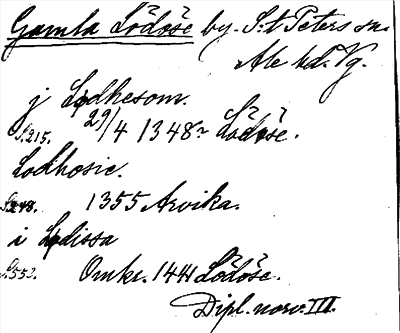 Gamla Lödöse by. S:t Peters sn.
Ale hd. Vg.
j Lødhesom.
S.215. 29/4 1348 Lödöse.
Lodhosie.
S.248. 1355 Arvika.
i Lødissa
S.552. Omkr. 1441 Lödöse.
Dipl. norv. III.